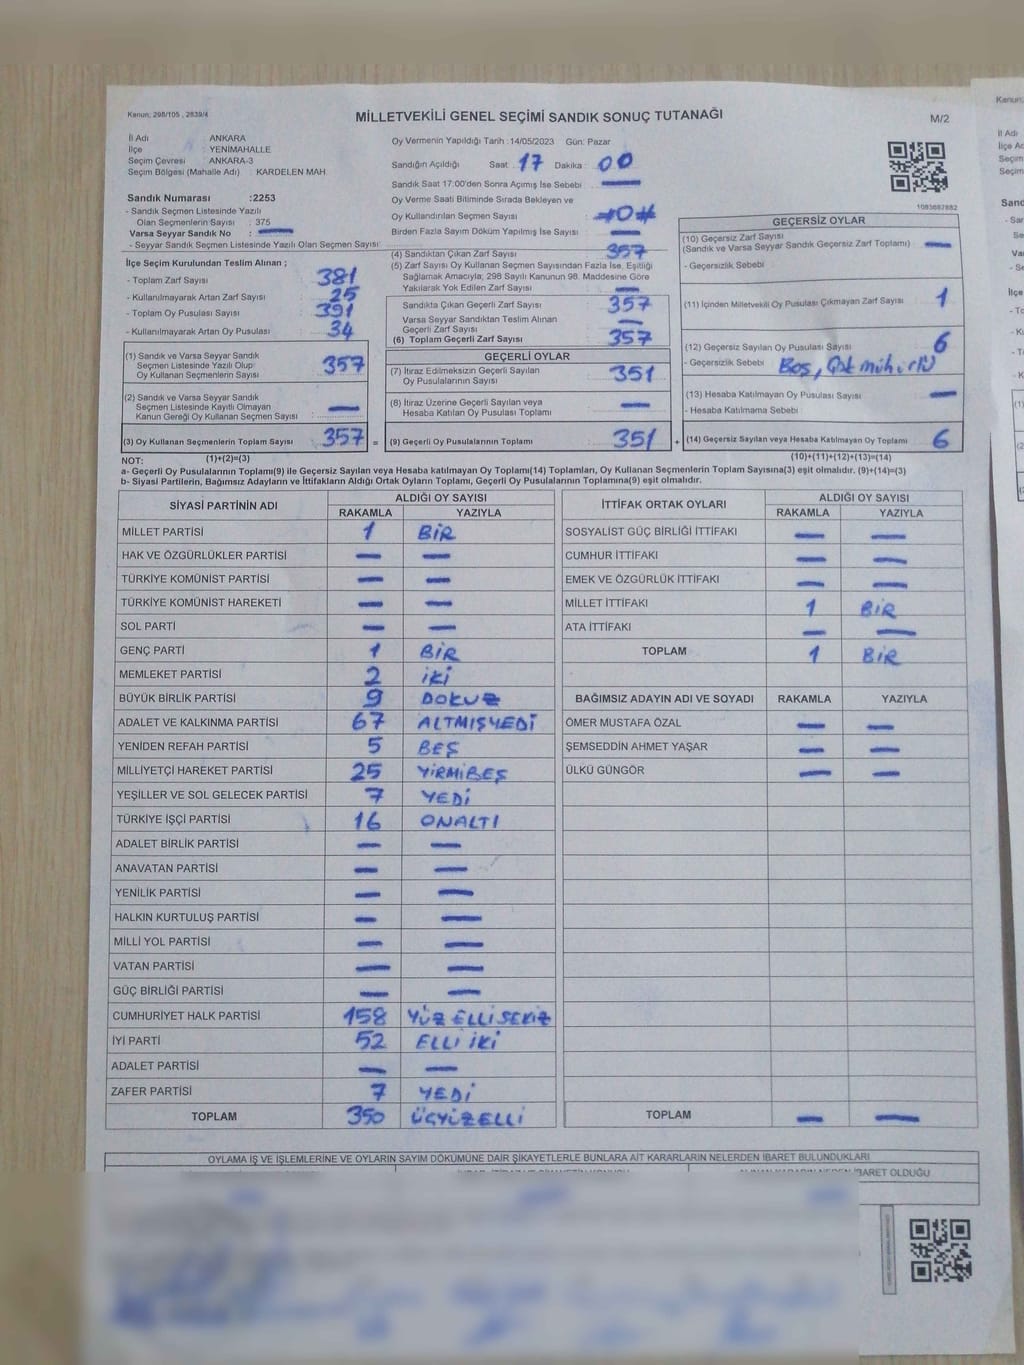 Kanun; 298/105 , 2839/4
MİLLETVEKİLİ GENEL SEÇİMİ SANDIK SONUÇ TUTANAĞI
M/2
İl Adı ANKARA
İlçe YENİMAHALLE
Seçim Çevresi ANKARA-3
Seçim Bölgesi (Mahalle Adı) KARDELEN MAH
Oy Vermenin Yapıldığı Tarih :14/05/2023 Gün: Pazar
Sandığın Açıldığı Saat 17 Dakika : 00
Sandık Saat 17:00'den Sonra Açımış İse Sebebi —
Oy Verme Saati Bitiminde Sırada Bekleyen ve
Oy Kullandırılan Seçmen Sayısı #0#
Birden Fazla Sayım Döküm Yapılmış İse Sayısı —
Sandık Numarası :2253
- Sandık Seçmen Listesinde Yazılı
Olan Seçmenlerin Sayısı : 375
Varsa Seyyar Sandık No : —
- Seyyar Sandık Seçmen Listesinde Yazılı Olan Seçmen Sayısı:
İlçe Seçim Kurulundan Teslim Alınan ;
- Toplam Zarf Sayısı 381
- Kullanılmayarak Artan Zarf Sayısı : 25
- Toplam Oy Pusulası Sayısı : 391
- Kullanılmayarak Artan Oy Pusulası : 34
(1) Sandık ve Varsa Seyyar Sandık
Seçmen Listesinde Yazılı Olup
Oy Kullanan Seçmenlerin Sayısı 357
(2) Sandık ve Varsa Seyyar Sandık
Seçmen Listesinde Kayıtlı Olmayan
Kanun Gereği Oy Kullanan Seçmen Sayısı : —
(3) Oy Kullanan Seçmenlerin Toplam Sayısı 357 =
(4) Sandıktan Çıkan Zarf Sayısı 357
(5) Zarf Sayısı Oy Kullanan Seçmen Sayısından Fazla İse, Eşitliği
Sağlamak Amacıyla, 298 Sayılı Kanunun 98. Maddesine Göre
Yakılarak Yok Edilen Zarf Sayısı : —
Sandıkta Çıkan Geçerli Zarf Sayısı : 357
Varsa Seyyar Sandıktan Teslim Alınan
Geçerli Zarf Sayısı —
(6) Toplam Geçerli Zarf Sayısı : 357
GEÇERLİ OYLAR
(7) İtiraz Edilmeksizin Geçerli Sayılan
Oy Pusulasının Sayısı : 351
(8) İtiraz Üzerine Geçerli Sayılan veya
Hesaba Katılan Oy Pusulası Toplamı : —
(9) Geçerli Oy Pusulalarının Toplamı : 351 +
1083687882
GEÇERSİZ OYLAR
(10) Geçersiz Zarf Sayısı
(Sandık ve Varsa Seyyar Sandık Geçersiz Zarf Toplamı) : —
- Geçersizlik Sebebi
(11) İçinden Milletvekili Oy Pusulası Çıkmayan Zarf Sayısı : 1
(12) Geçersiz Sayılan Oy Pusulası Sayısı : 6
- Geçersizlik Sebebi Boş,
(13) Hesaba Katılmayan Oy Pusulası Sayısı : —
- Hesaba Katılmama Sebebi :
(14) Geçersiz Sayılan veya Hesaba Katılmayan Oy Toplamı : 6
NOT: (1)+(2)=(3) (10)+(11)+(12)+(13)=(14)
a- Geçerli Oy Pusulalarının Toplamı(9) ile Geçersiz Sayılan veya Hesaba katılmayan Oy Toplamı(14) Toplamları, Oy Kullanan Seçmenlerin Toplam Sayısına(3) eşit olmalıdır. (9)+(14)=(3)
b- Siyasi Partilerin, Bağımsız Adayların ve İttifakların Aldığı Ortak Oyların Toplamı, Geçerli Oy Pusulalarının Toplamına(9) eşit olmalıdır.
SİYASİ PARTİNİN ADI ALDIĞI OY SAYISI
RAKAMLA YAZIYLA
MİLLET PARTİSİ 1 BİR
HAK VE ÖZGÜRLÜKLER PARTİSİ — —
TÜRKİYE KOMÜNİST PARTİSİ — —
TÜRKİYE KOMÜNİST HAREKETİ — —
SOL PARTİ — —
GENÇ PARTİ 1 BİR
MEMLEKET PARTİSİ 2 İKİ
BÜYÜK BİRLİK PARTİSİ 9 DOKUZ
ADALET VE KALKINMA PARTİSİ 67 ALTMIŞYEDİ
YENİDEN REFAH PARTİSİ 5 BEŞ
MİLLİYETÇİ HAREKET PARTİSİ 25 YİRMİBEŞ
YEŞİLLER VE SOL GELECEK PARTİSİ 7 YEDİ
TÜRKİYE İŞÇİ PARTİSİ 16 ONALTI
ADALET BİRLİK PARTİSİ — —
ANAVATAN PARTİSİ — —
YENİLİK PARTİSİ — —
HALKIN KURTULUŞ PARTİSİ — —
MİLLİ YOL PARTİSİ — —
VATAN PARTİSİ — —
GÜÇ BİRLİĞİ PARTİSİ — —
CUMHURİYET HALK PARTİSİ 158 YÜZELLİSEKİZ
İYİ PARTİ 52 ELLİ İKİ
ADALET PARTİSİ — —
ZAFER PARTİSİ 7 YEDİ
TOPLAM 350 ÜÇYÜZELLİ
İTTİFAK ORTAK OYLARI ALDIĞI OY SAYISI
RAKAMLA YAZIYLA
SOSYALİST GÜÇ BİRLİĞİ İTTİFAKI — —
CUMHUR İTTİFAKI — —
EMEK VE ÖZGÜRLÜK İTTİFAKI — —
MİLLET İTTİFAKI 1 BİR
ATA İTTİFAKI — —
TOPLAM 1 BİR
BAĞIMSIZ ADAYIN ADI VE SOYADI RAKAMLA YAZIYLA
ÖMER MUSTAFA ÖZAL — —
ŞEMSEDDİN AHMET YAŞAR — —
ÜLKÜ GÜNGÖR — —
TOPLAM — —
OYLAMA İŞ VE İŞLEMLERİNE VE OYLARIN SAYIM DÖKÜMÜNE DAİR ŞİKAYETLERLE BUNLARA AİT KARARLARIN NELERDEN İBARET BULUNDUKLARI
İBARET OLDUĞU
Kanun;
İl Adı
İlçe Ad
Seçim
Sand